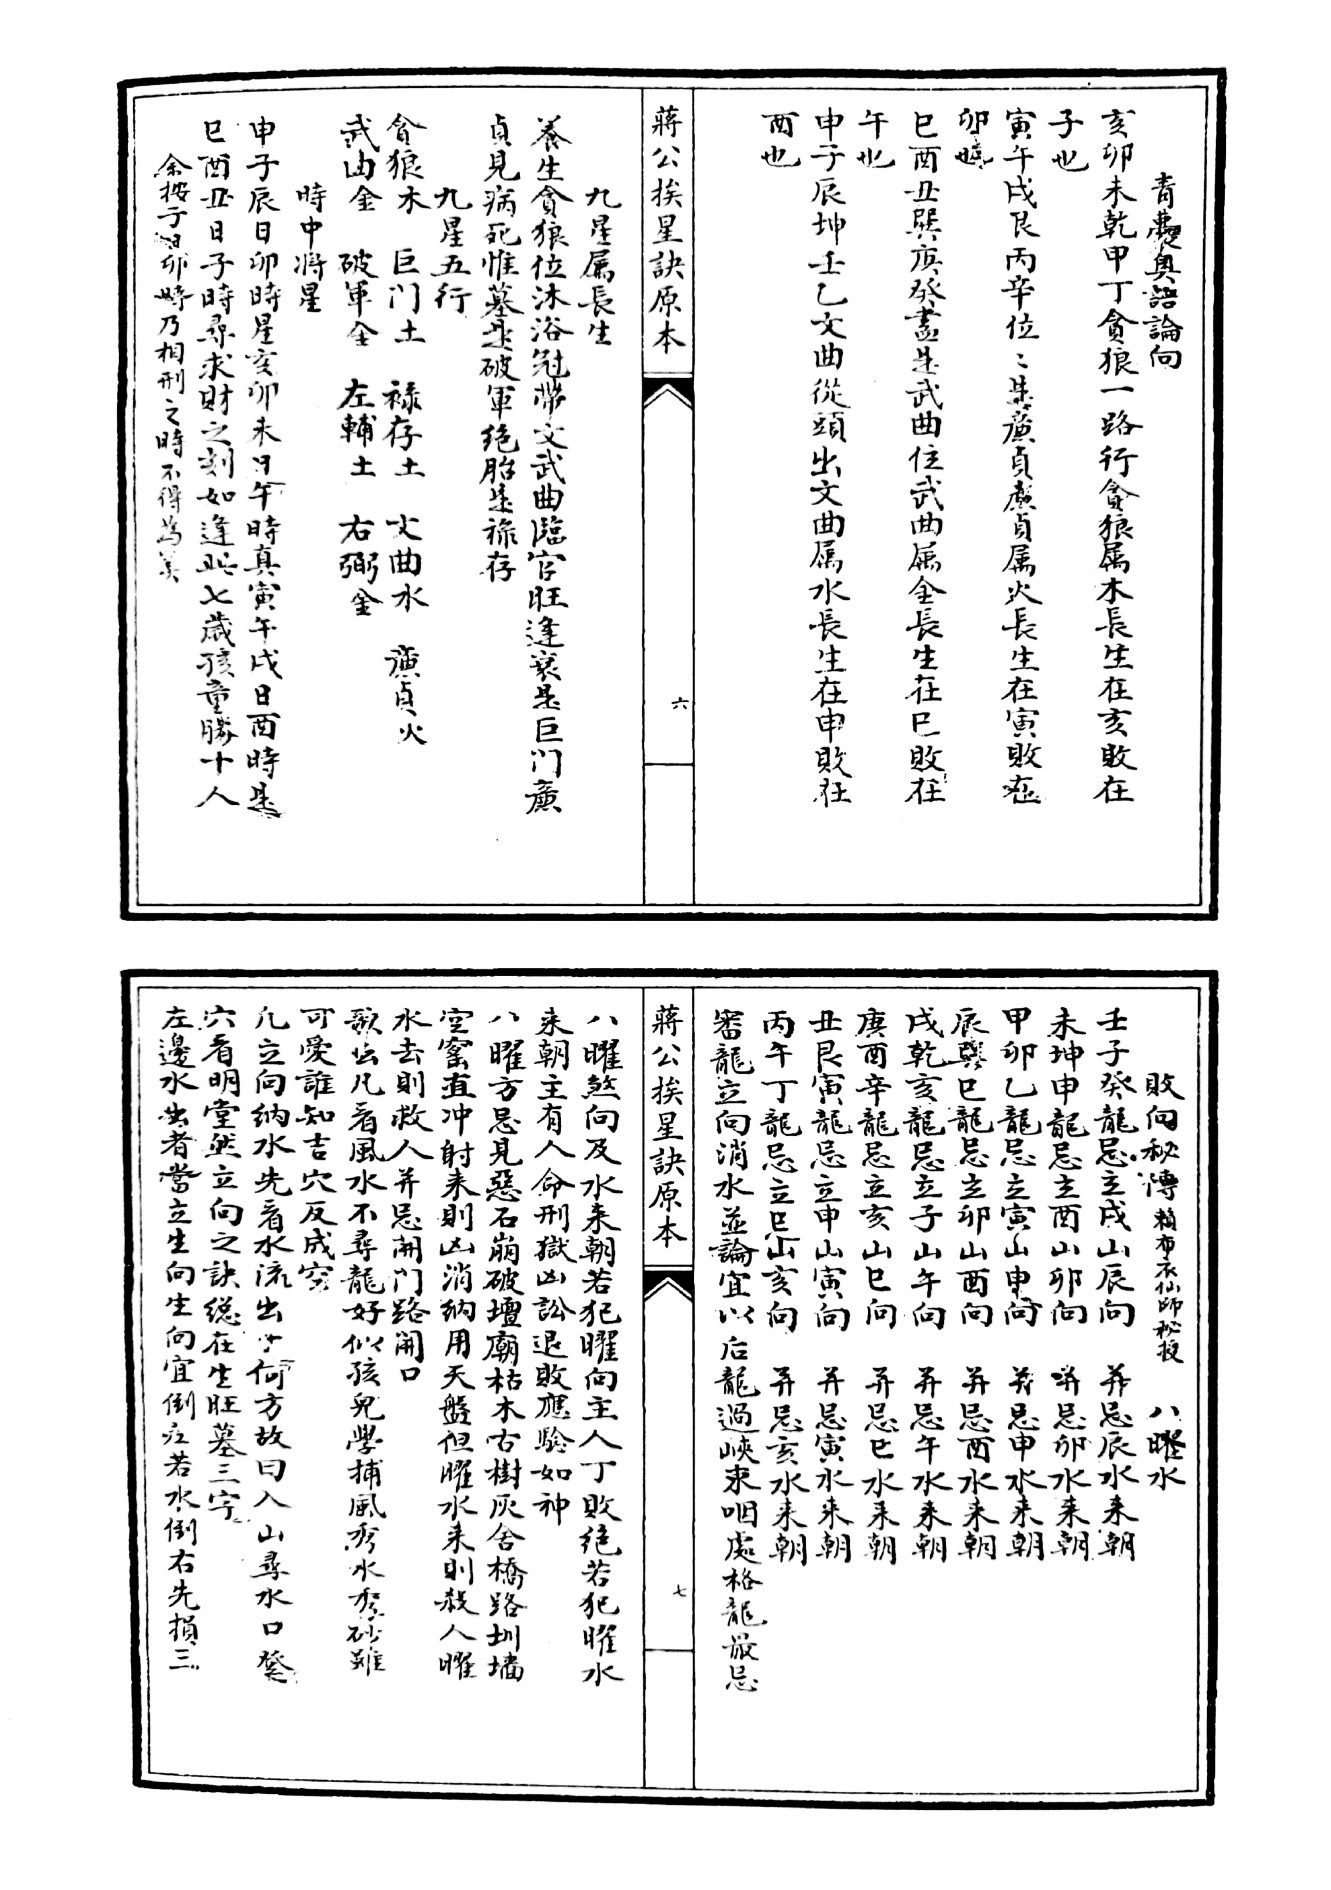 青囊奧語論向
亥卯未乾甲丁貪狼一路行貪狼属木長生在亥敗在
子也
寅午戌艮丙辛位〻是廉貞廉貞属火長生在寅敗在
卯也
巳酉丑巽庚癸盡是武曲位武曲属金長生在巳敗在
午也
申子辰坤壬乙文曲從頭出文曲属水長生在申敗在
酉也
蔣公挨星訣原本
六
九星属長生
養生貪狼位沐浴冠帶文武曲臨官旺逢衰是巨门廉
貞見病死惟墓是破軍绝胎是祿存
九星五行
貪狼木 巨门土 祿存土 文曲水 廉貞火
武曲金 破軍金 左輔土 右弼金
時中將星
申子辰日卯時星亥卯未日午時真寅午戌日酉時是
巳酉丑日子時尋求財之刻如逢此七歲孩童勝十人
余按子日卯時乃相刑之時不得為美
敗向秘傳 賴布衣仙師秘授 八曜水
壬子癸龍忌立戌山辰向 并忌辰水来朝
未坤申龍忌立酉山卯向 并忌卯水来朝
甲卯乙龍忌立寅山申向 并忌申水来朝
辰巽巳龍忌立卯山酉向 并忌酉水来朝
戌乾亥龍忌立子山午向 并忌午水来朝
庚酉辛龍忌立亥山巳向 并忌巳水来朝
丑艮寅龍忌立申山寅向 并忌寅水来朝
丙午丁龍忌立巳山亥向 并忌亥水来朝
審龍立向消水並論宜以后龍過峽束咽處格龍最忌
蔣公挨星訣原本
七
八曜煞向及水来朝若犯曜向主人丁敗绝若犯曜水
来朝主有人命刑獄凶訟退敗應驗如神
八曜方忌見惡石崩破壇廟枯木古樹灰舍橋路圳墻
空窰直冲射来則凶消納用天盤但曜水来則殺人曜
水去則救人并忌開门路開口
歌云凡看風水不尋龍好似孩兒學捕風秀水秀砂雖
可愛誰知吉穴反成空
凡立向納水先看水流出于何方故曰入山尋水口登
穴看明堂然立向之訣總在生旺墓三字
左邊水出者當立生向生向宜倒左若水倒右先損三